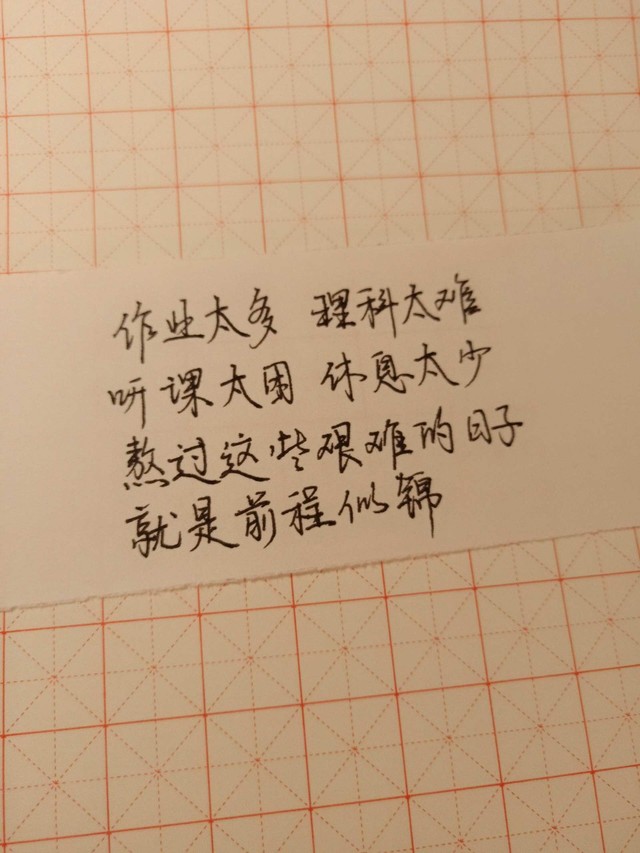 作业太多 理科太难
听课太困 休息太少
熬过这些艰难的日子
就是前程似锦